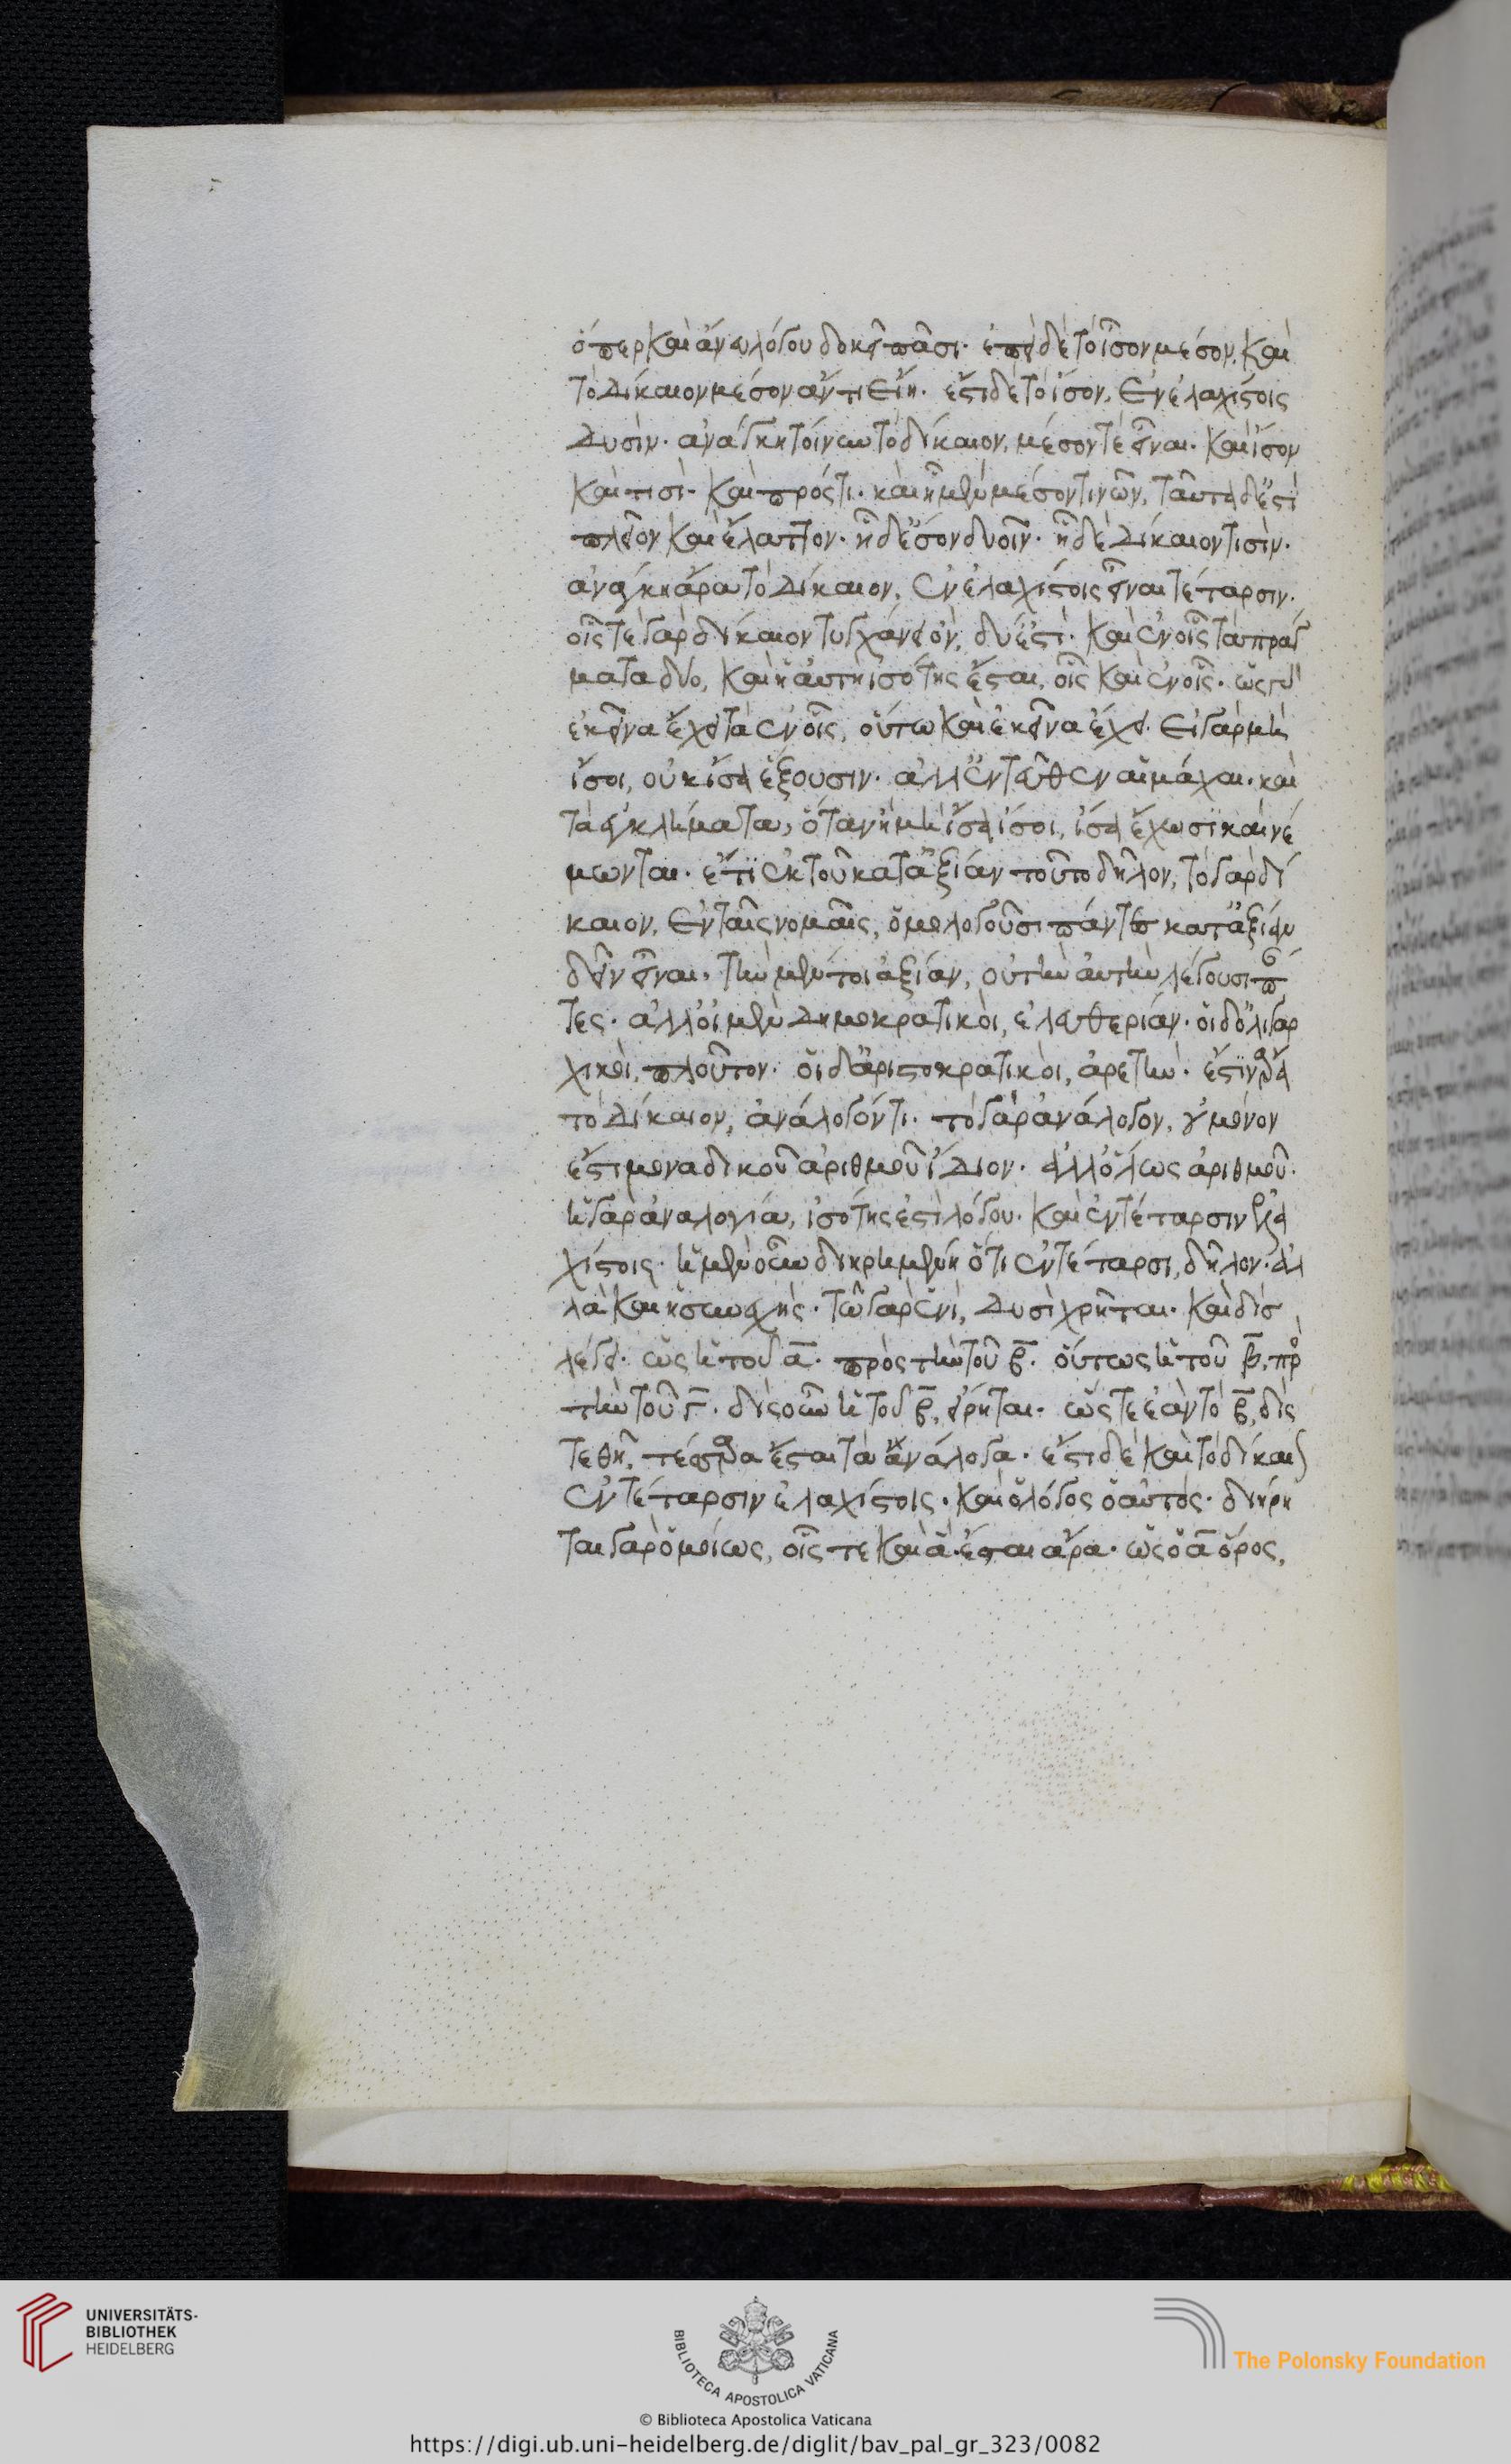 ὅπερ καὶ ἄνευ λόγου δοκεῖ πᾶσι. ἐπεὶ δὲ τὸ ἴσον μέσον, καὶ
τὸ δίκαιον μέσον ἄν τι εἴη. ἔστι δὲ τὸ ἴσον, ἐν ἐλαχίστοις
δυσίν. ἀνάγκη τοίνυν τὸ δίκαιον, μέσον τὲ εἶναι. καὶ ἴσον
καὶ τισὶ. καὶ πρός τι. καὶ ἧ μὲν μέσον τινῶν, ταῦτα δ' ἐστὶ
πλεῖον καὶ ἔλαττον. ἧ δ' ἴσον δυοῖν. ἧ δὲ δίκαιον τισὶν.
ἀνάγκη ἄρα τὸ δίκαιον, ἐν ἐλαχίστοις εἶναι τέταρσιν.
οἷς τε γὰρ δίκαιον τυγχάνει ὂν, δύ' ἐστὶ. καὶ ἐν οἷς τὰ πράγ
ματα δύο, καὶ ἡ ἀυτὴ ἰσότης ἔσται, οἷς καὶ ἐν οἷς. ὡς γὰρ
ἐκεῖνα ἔχει τὰ ἐν οἷς, οὕτω καὶ ἐκεῖνα ἔχει. εἰ γὰρ μὴ
ἴσοι, οὐκ ἴσα ἕξουσιν. ἀλλ' ἐντεῦθεν αἱ μάχαι. καὶ
τὰ ἐγκλήματα, ὅταν ἢ μὴ ἴσα ἴσοι, ἴσα ἔχωσι καὶ νέ
μωνται. ἔτι ἐκ τοῦ κατ' ἀξίαν τοῦτο δῆλον, τὸ γὰρ δί
καιον, ἐν ταῖς νομαῖς, ὁμολογοῦσι πάντες κατ' ἀξίαν
δεῖν εἶναι. τὴν μέντοι ἀξίαν, οὐ τὴν ἀυτὴν λέγουσι πάν
τες. ἀλλ' οἱ μὲν δημοκρατικοὶ, ἐλευθερίαν. οἱ δ' ὀλιγαρ
χικοὶ, πλοῦτον. οἱ δ' ἀριστοκρατικοὶ, ἀρετὴν. ἔστιν ἄρα
τὸ δίκαιον, ἀνάλογόν τι. τὸ γὰρ ἀνάλογον, οὐ μόνον
ἐστι μοναδικοῦ ἀριθμοῦ ἴδιον. ἀλλ' ὅλως ἀριθμοῦ.
ἡ γὰρ ἀναλογία, ἰσότης ἐστὶ λόγου. καὶ ἐν τέταρσιν ἐλα
χίστοις. ἡ μὲν οὖν διῃρημένη ὅτι ἐν τέταρσι, δῆλον. ἀλ
λὰ καὶ ἡ συνεχής. τῶ γὰρ ἑνὶ, δυσὶ χρῆται. καὶ δὶσ
λέγει. ὡς ἡ τοῦ α. πρὸς τὴν τοῦ β. οὕτως ἡ τοῦ β, πρὸς
τὴν τοῦ γ. δὶς οὖν ἡ τοῦ β, εἴρηται. ὥς τε ἐὰν τὸ β, δὶς
τεθῆ, τέσσαρα ἔσται τὰ ἀνάλογα. ἔστι δὲ καὶ τὸ δίκαιον
ἐν τέταρσιν ἐλαχίστοις. καὶ ὁ λόγος ὁ αὐτός. διήρη
ται γὰρ ὁμοίως, οἷς τε καὶ ἃ. ἔσται ἄρα. ὡς ὁ α ὅρος,
UNIVERSITÄTS-
BIBLIOTHEK
HEIDELBERG
BIBLIOTECA APOSTOLICA VATICANA
The Polonsky Foundation
© Biblioteca Apostolica Vaticana
https://digi.ub.uni-heidelberg.de/diglit/bav_pal_gr_323/0082